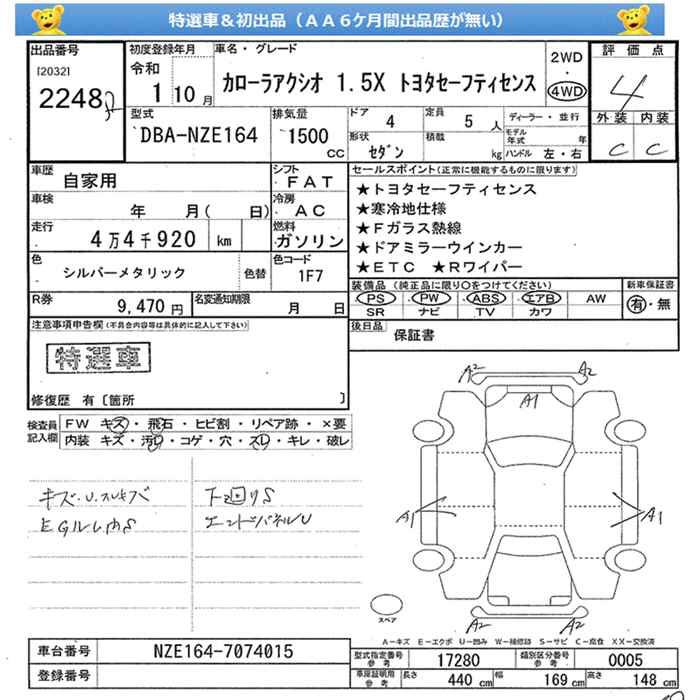 特選車＆初出品（ＡＡ６ケ月間出品歴が無い）
出品番号
[2032]
2248
初度登録年月
令和
1 10月
車名・グレード
カローラアクシオ 1.5X トヨタセーフティセンス
2WD
・
4WD
評価点
4
外装 内装
C C
型式
DBA-NZE164
排気量
1500
CC
ドア
4
定員
5 人
ディーラー・並行
形状
セダン
積載
kg
モデル年式 年
ハンドル 左・右
車歴
自家用
シフト
FAT
車検
年 月( 日)
冷房
AC
走行
4万4千920 km
燃料
ガソリン
色
シルバーメタリック
色替
色コード
1F7
R券
9,470 円
名変通知期限
月 日
セールスポイント(正常に機能するものに限ります)
★トヨタセーフティセンス
★寒冷地仕様
★Fガラス熱線
★ドアミラーウインカー
★ETC ★Rワイパー
装備品(純正品に限り○をつけてください)
PS PW ABS エアB AW
SR ナビ TV カワ
新車保証書
有・無
後日品
保証書
注意事項申告欄(不具合内容等は具体的に記入して下さい)
特選車
修復歴 有〔箇所 〕
検査員記入欄
FW キズ・飛石・ヒビ割・リペア跡・×要
内装 キズ・汚レ・コゲ・穴・スレ・キレ・破レ
キズ・U・スレキズ
EGルーム内S
下回りS
エンドパネルU
A2
A2
A1
A1
A1
A2
A2
スペア
A－キズ E－エクボ U－凹み W－補修跡 S－サビ C－腐食 XX－交換済
車台番号
NZE164-7074015
登録番号
型式指定番号
参考
17280
類別区分番号
参考
0005
車庫証明用
参考
長さ
440 cm
幅
169 cm
高さ
148 cm